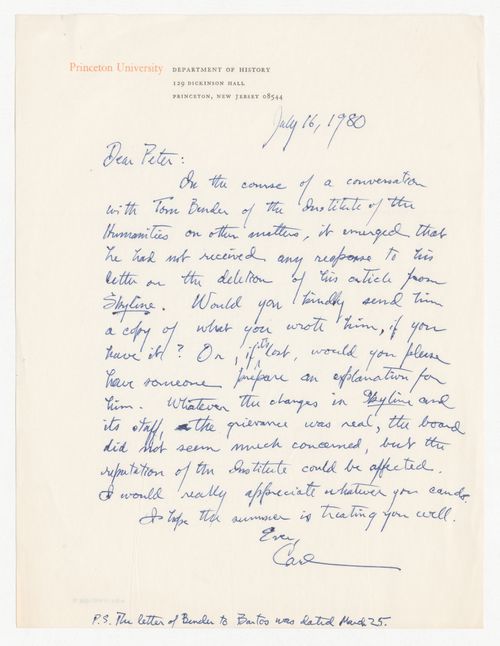 Princeton University DEPARTMENT OF HISTORY
129 DICKINSON HALL
PRINCETON, NEW JERSEY 08544
July 16, 1980
Dear Peter:
In the course of a conversation
with Tom Bender of the Institute of the
Humanities on other matters, it emerged that
he had not received any response to his
letter on the deletion of his article from
Skyline. Would you kindly send him
a copy of what you wrote him, if you
have it? Or, if it's lost, would you please
have someone prepare an explanation for
him. Whatever the changes in Skyline and
its staff, the grievance was real, the board
did not seem much concerned, but the
reputation of the Institute could be affected.
I would really appreciate whatever you can do.
I hope the summer is treating you well.
Ever,
Carl
P.S. The letter of Bender to Bartos was dated March 25.